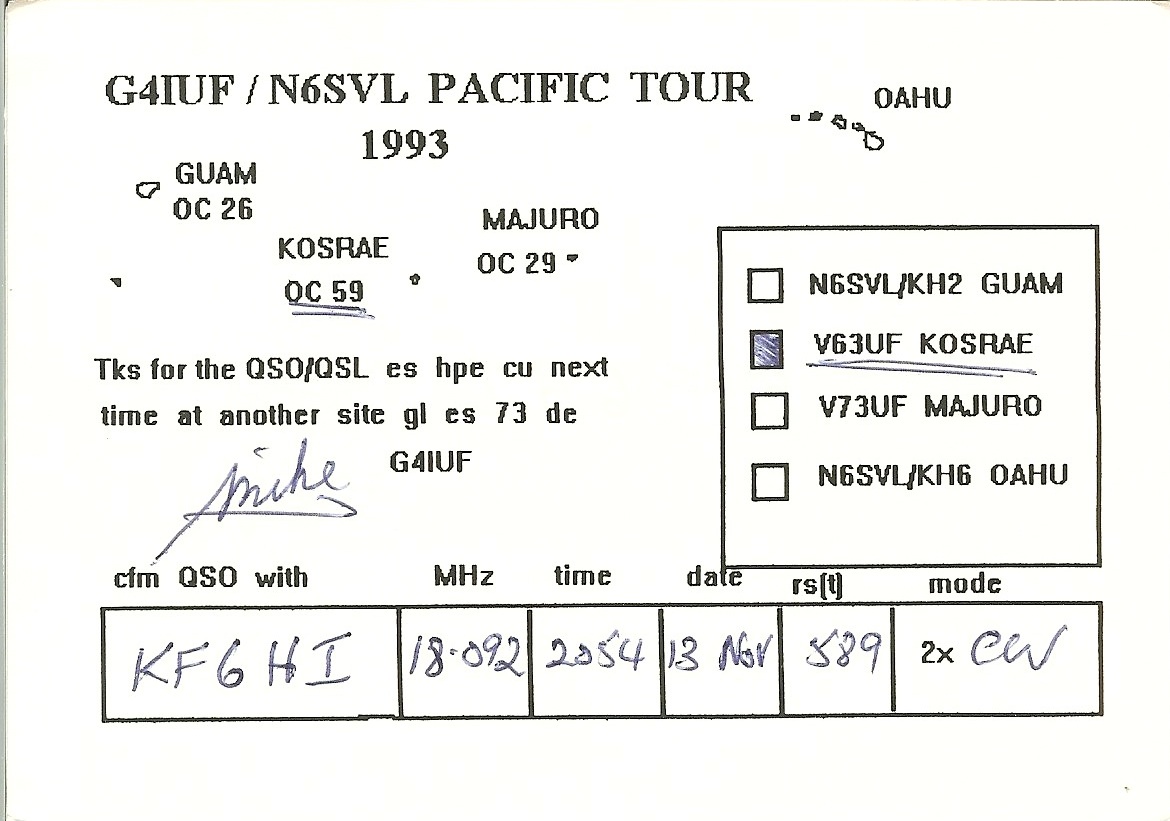 G4IUF / N6SVL PACIFIC TOUR
1993
OAHU
GUAM
OC 26
KOSRAE
OC 59
MAJURO
OC 29
N6SVL/KH2 GUAM
V63UF KOSRAE
V73UF MAJURO
N6SVL/KH6 OAHU
Tks for the QSO/QSL es hpe cu next
time at another site gl es 73 de
Mike G4IUF
cfm QSO with MHz time date rs(t) mode
KF6HI 18.092 2054 13 Nov 589 2x CW